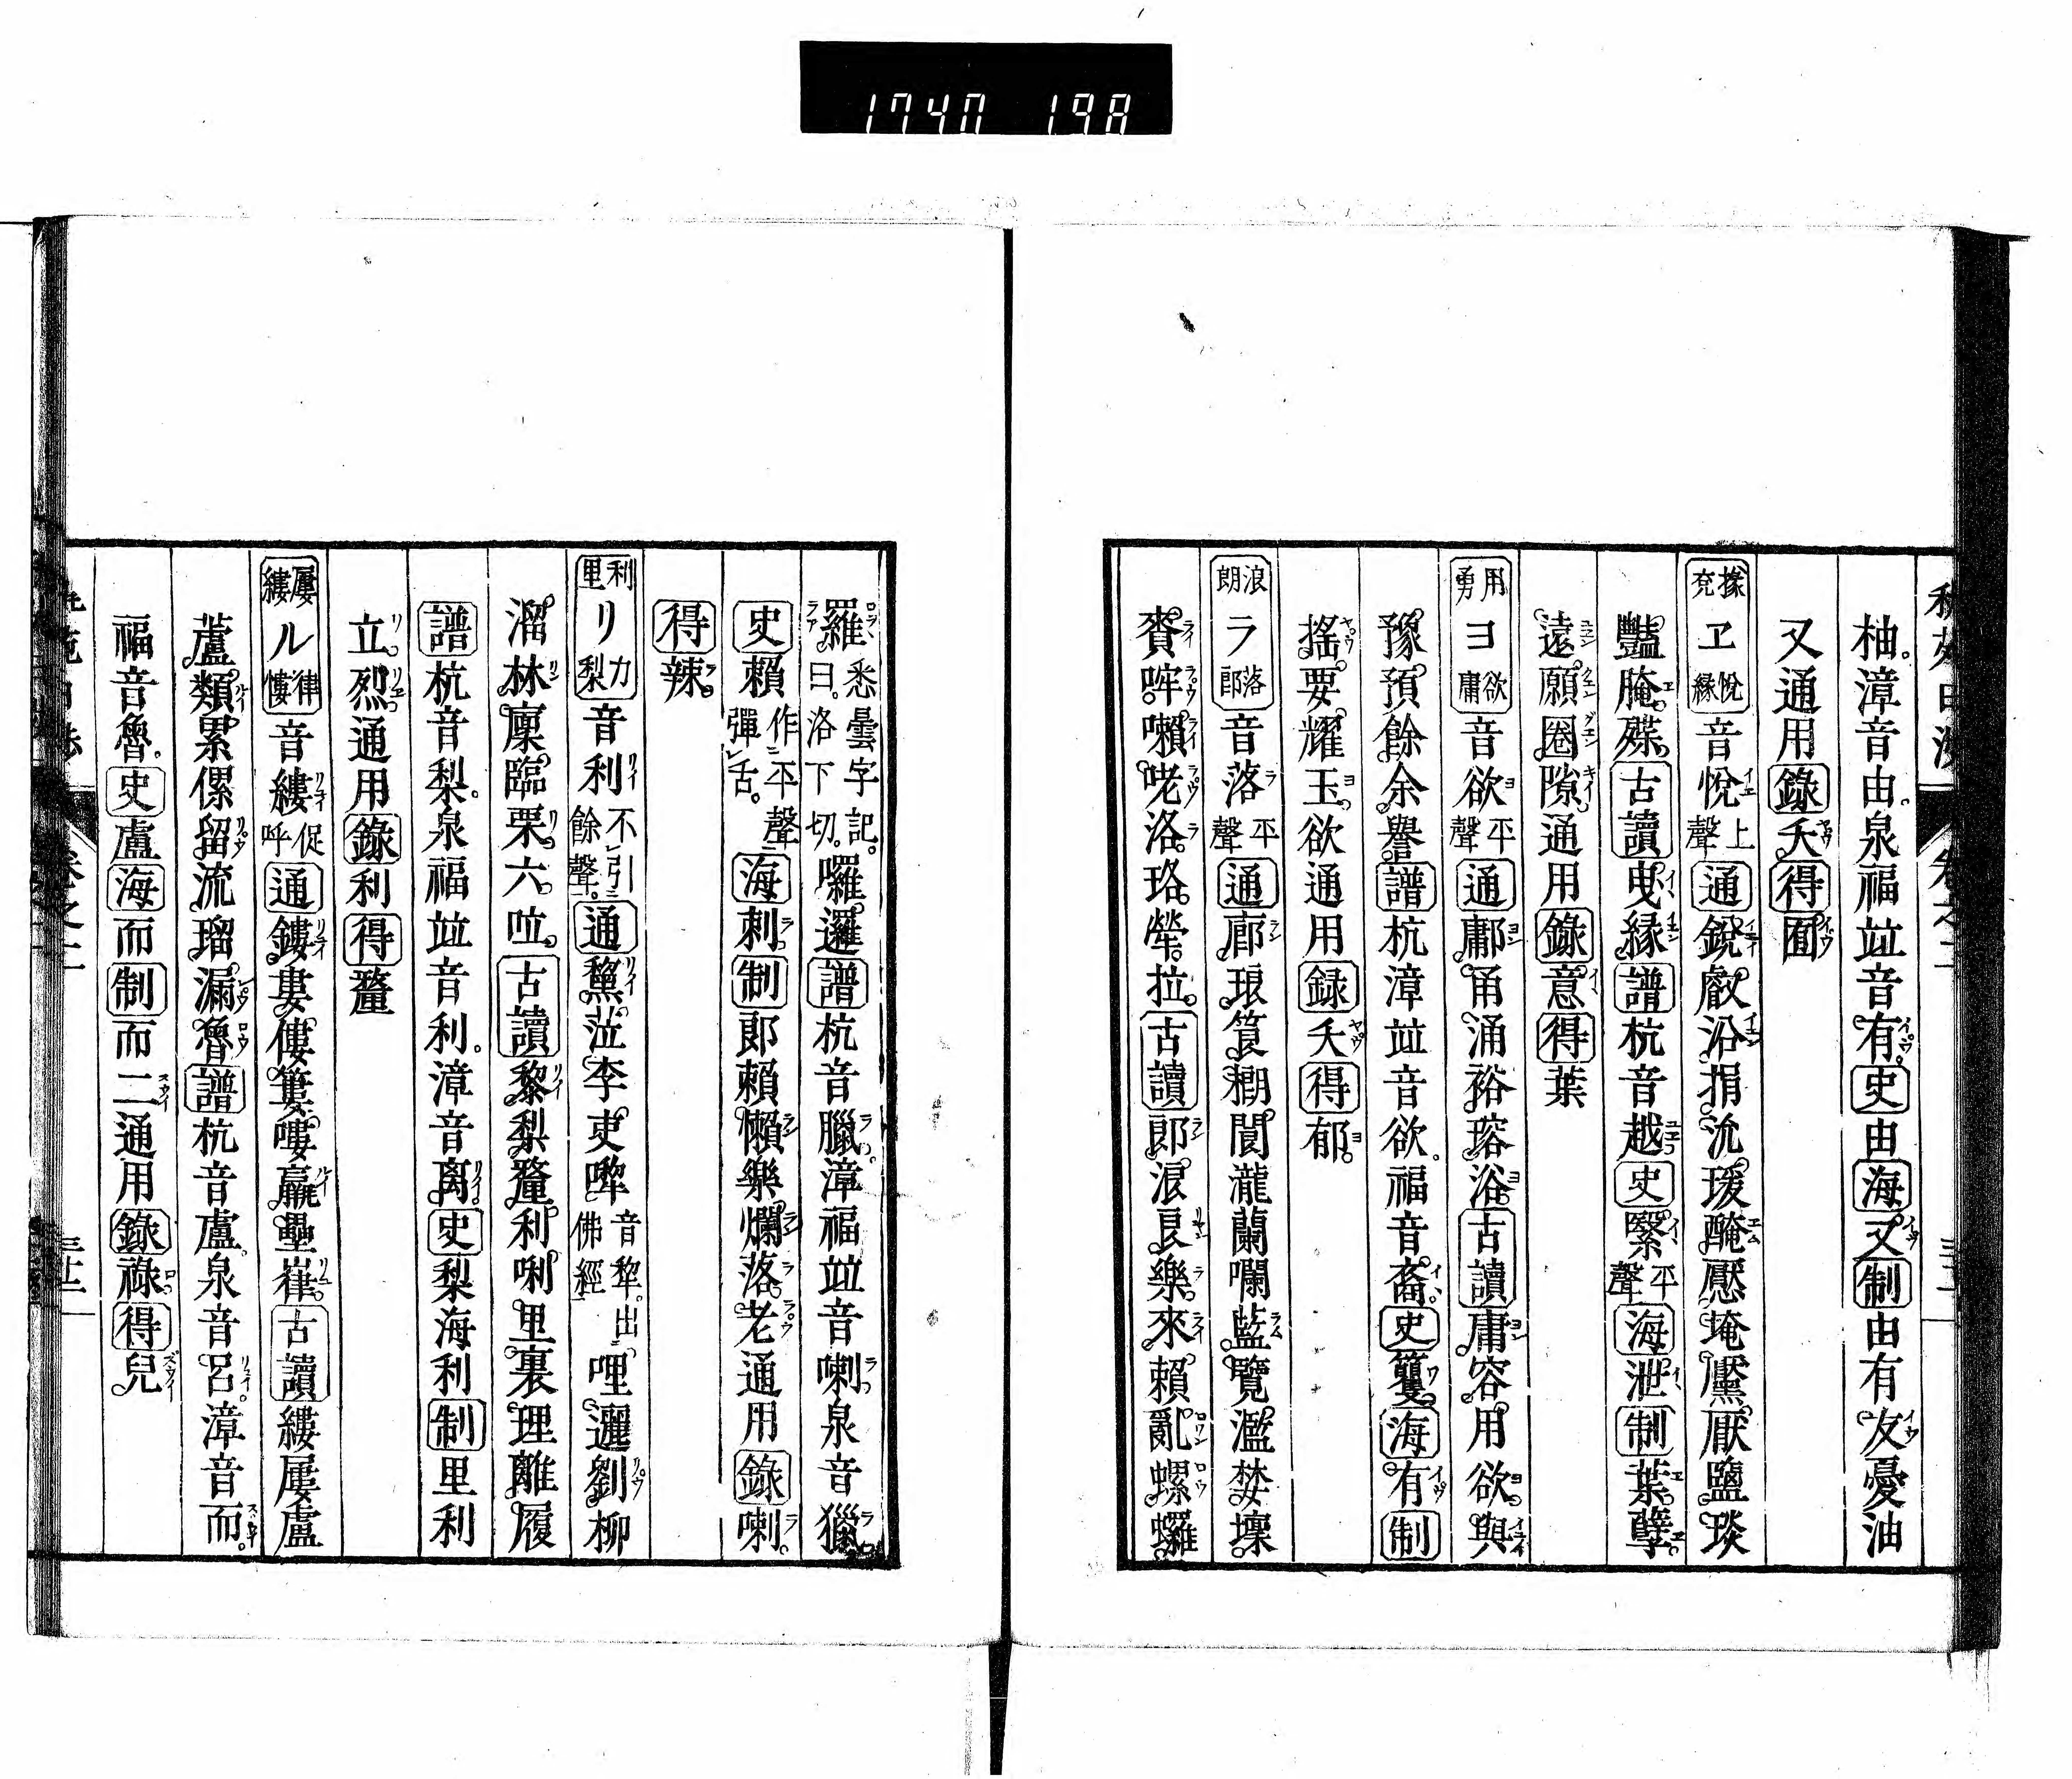 1740 198
柚漳音由泉福竝音有史由海又制由有友憂油
又通用錄夭得囿
掾兗ヱ悅緣音悅上聲通銳叡沿捐沇瑗醃壓埯黶厭鹽琰
豔腌殜古讀曳緣譜杭音越史緊平聲海泄制葉孽
遠願圈隙通用錄意得葉
用勇ヨ欲庸音欲平聲通鄘甬涌裕瑢浴古讀庸容用欲與
豫預餘余譽譜杭漳竝音欲福音裔史籰海有制
搖要耀玉欲通用録夭得郁
浪朗ラ落郎音落平聲通廊琅筤閬瀧蘭囒藍覽濫婪壈
賚哰嚹咾洛珞犖拉古讀郎浪良樂來賴亂螺囉
羅悉曇字記曰洛下切囉邏譜杭音臘漳福竝音喇泉音獵
史賴作平聲彈舌海刺制郎賴懶樂爛落老通用錄喇
得辣
利里リ力梨音利不引餘聲通黧蒞李吏嚟音犂出佛經哩邐劉柳
溜林廩臨栗六竝古讀黎梨釐利唎里裏理離履
譜杭音梨泉福竝音利漳音离史梨海利制里利
立烈通用錄利得釐
屢縷ル律慺音縷促呼通鏤婁僂簍嘍羸壘嵂古讀縷屢盧
蘆類累傫留流瑠漏魯譜杭音盧泉音呂漳音而
福音魯史盧海而制而二通用錄祿得兒